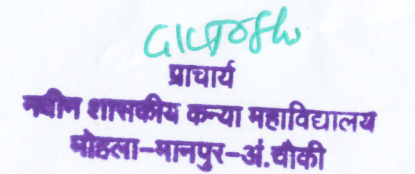 प्राचार्य
नवीन शासकीय कन्या महाविद्यालय
मोहला-मानपुर-अं.चौकी